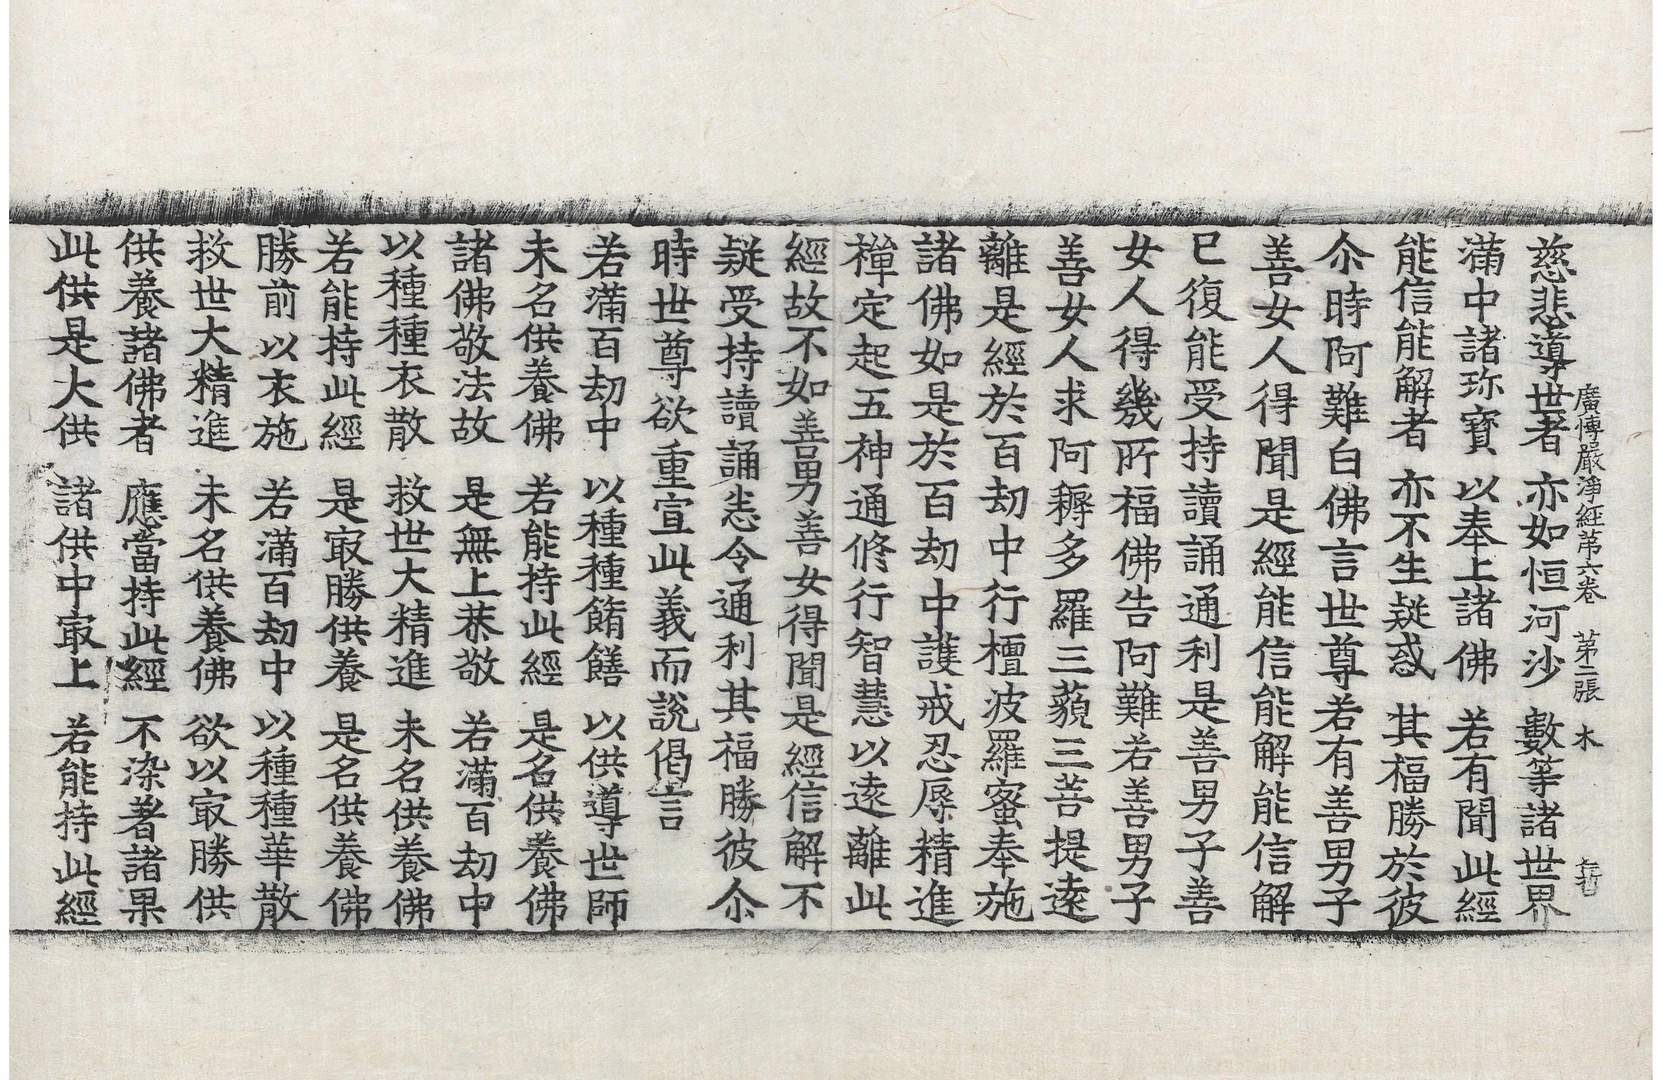 廣博嚴淨經第六卷 第二張 木
慈悲導世者 亦如恒河沙 數等諸世界
滿中諸珎寶 以奉上諸佛 若有聞此經
能信能解者 亦不生疑惑 其福勝於彼
尒時阿難白佛言世尊若有善男子
善女人得聞是經能信能解能信解
已復能受持讀誦通利是善男子善
女人得幾所福佛告阿難若善男子
善女人求阿耨多羅三藐三菩提遠
離是經於百劫中行檀波羅蜜奉施
諸佛如是於百劫中護戒忍辱精進
禪定起五神通修行智慧以遠離此
經故不如善男善女得聞是經信解不
疑受持讀誦悉令通利其福勝彼尒
時世尊欲重宣此義而說偈言
若滿百劫中 以種種餚饍 以供導世師
未名供養佛 若能持此經 是名供養佛
諸佛敬法故 是無上恭敬 若滿百劫中
以種種衣散 救世大精進 未名供養佛
若能持此經 是㝡勝供養 是名供養佛
勝前以衣施 若滿百劫中 以種種華散
救世大精進 未名供養佛 欲以㝡勝供
供養諸佛者 應當持此經 不染著諸果
此供是大供 諸供中㝡上 若能持此經